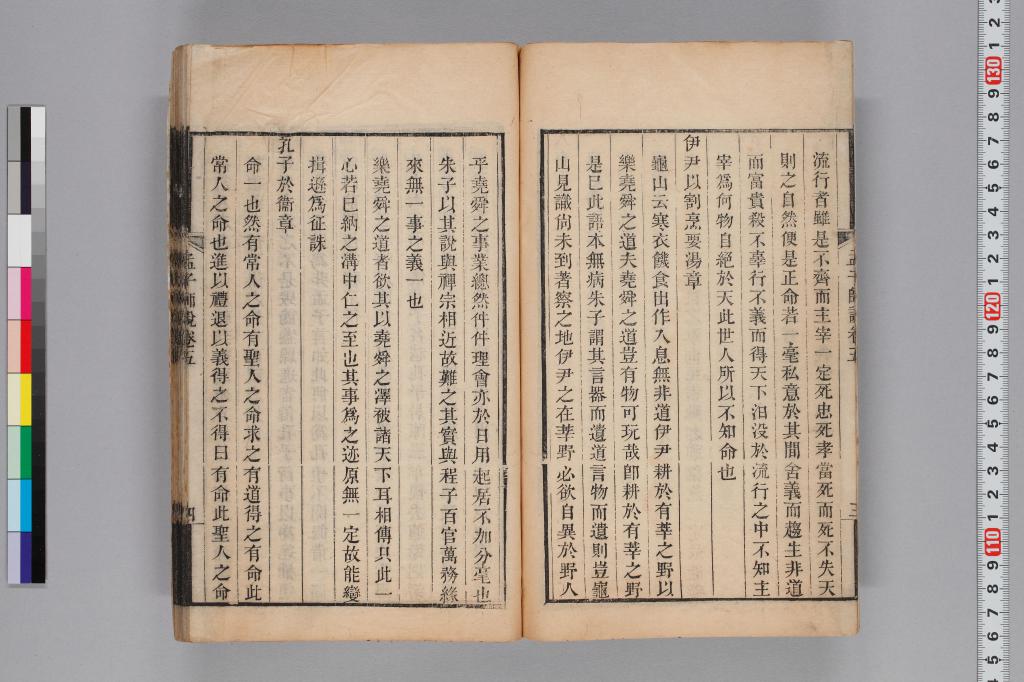 流行者雖是不齊而主宰一定死忠死孝當死而死不失天
則之自然便是正命若一毫私意於其間舍義而趨生非道
而富貴殺不辜行不義而得天下汩没於流行之中不知主
宰爲何物自絕於天此世人所以不知命也
伊尹以割烹要湯章
龜山云寒衣饑食出作入息無非道伊尹耕於有莘之野以
樂堯舜之道夫堯舜之道豈有物可玩哉卽耕於有莘之野
是已此語本無病朱子謂其言器而遺道言物而遺則豈龜
山見識尙未到著察之地伊尹之在莘野必欲自異於野人
乎堯舜之事業總然件件理會亦於日用起居不加分毫也
朱子以其說與禪宗相近故難之其實與程子百官萬務緣
來無一事之義一也
樂堯舜之道者欲其以堯舜之澤被諸天下耳相傳只此一
心若已納之溝中仁之至也其事爲之迹原無一定故能變
揖遜爲征誅
孔子於衞章
命一也然有常人之命有聖人之命求之有道得之有命此
常人之命也進以禮退以義得之不得曰有命此聖人之命
孟子師說卷五
三
孟子師說卷五
四
130
120
110